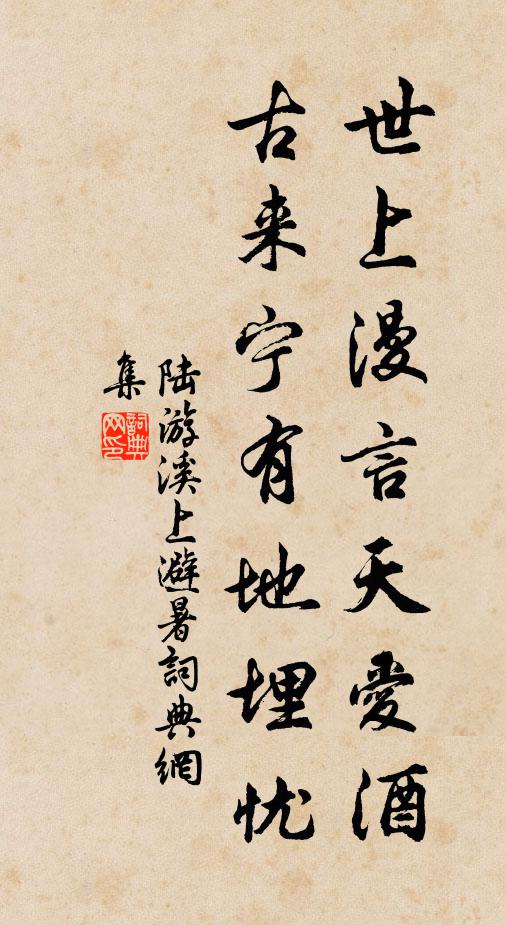 世上漫言天愛酒
古来宁有地埋忧
陆游溪上避暑詞典網
集
詞典
网印